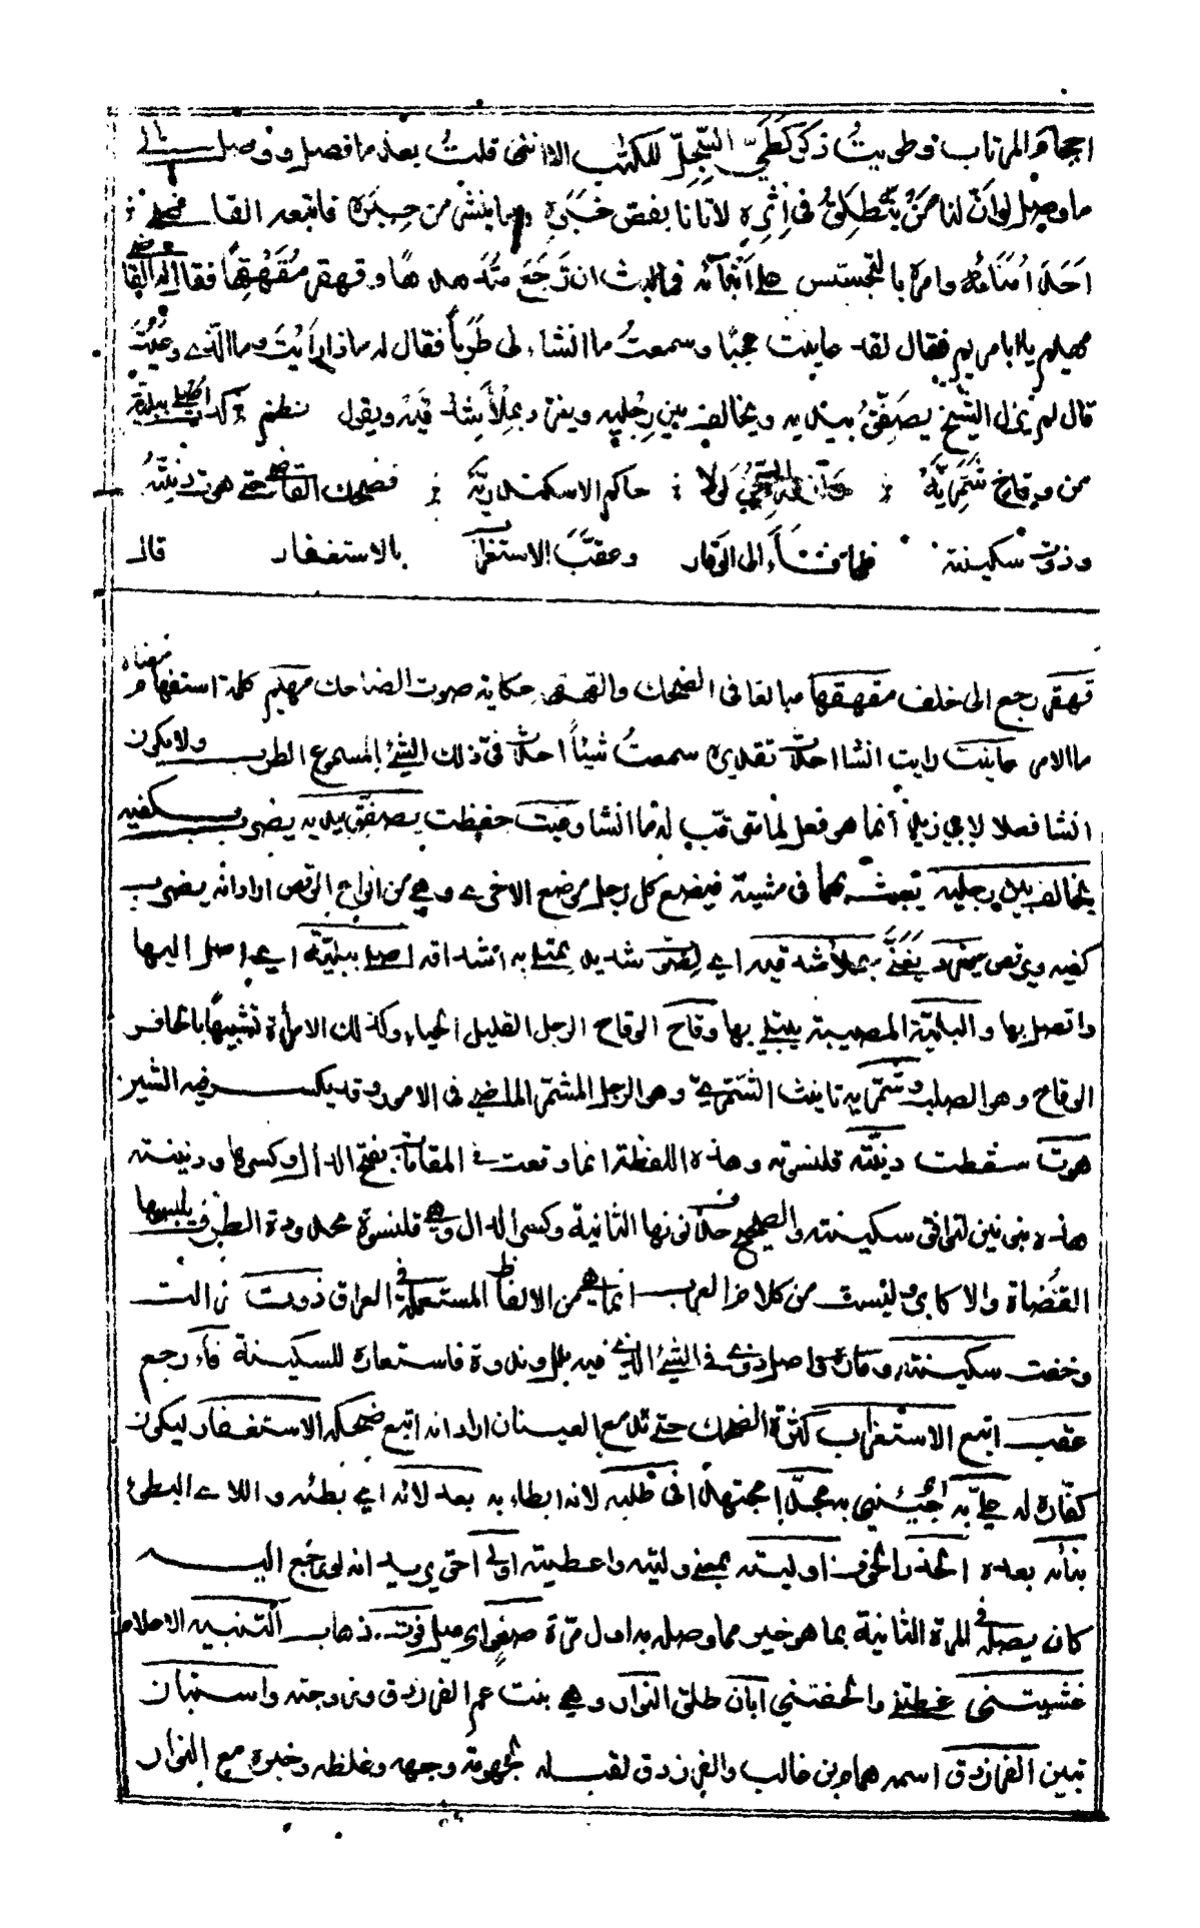 احجام المرتاب وطويت ذكره كَطَيّ السِّجِلّ للكتاب الا انني قلتُ بعد ما فصل ووصل الى
ما وصل لو اَنّ لنا مَنْ يَنْطَلِقُ فى اِثْرِهِ لاتانا بفصّ خَبَرِهِ وبما ينشر من حِبَرِه فاتبعه القاضى
اَحَدَ اُمَنَائِهِ وامره بالتجسّس على اَنْبَآئه فما لبث ان رَجَعَ مُتَدَهدهًا وقهقر مُقَهْقِهًا فقال له القاضى
مهيم يا ابا مريم فقال لقد عاينت عجبًا وسمعتُ ما انشاء لى طَرَبًا فقال له ماذا رَاَيْتَ وما الذى وَعَيْتَ
قال لم يزل الشيخ يصَفّقُ بيديه ويخالف بين رِجْليه ويغرد بمِلْأ شدقيه ويقول نظم كدت اصلى ببلية
من وقاح شَمَّرِيَّهْ ؛ وازور السجن لولا ؛ حاكم الاسكندريّه ؛ فضحك القاضى حتى هوت دنيته
وذوت سكينته فلما فاءَ الى الوقار وعقّبَ الاستغراب بالاستغفار قال
قهقر رجع الى خلف مقهقها مبالغا فى الضحك والقهقهة حكاية صوت الضاحك مهيم كلمة استفهام معناه
ما الامر عاينت رايت انشا احدث تقديره سمعتُ شيئاً احدث فىّ ذلك الشئ المسموع الطرب ولا يكون
انشا فعلا لابى زيد انما هو فعل لما تقرب له ما انشا وعيت حفظت يصفق بيديه يضرب بكفيه
يخالف بين رجليه بهما فى مشيته فيضع كل رجل موضع الاخرى وهى من انواع الرقص اراد انه يضرب
كفيه ويرقص يغرد يُغَنّى بملأ شدقيه اى شديد يمتلى به اشداقه اصلى ببليّة اى اصل اليها
واتصل بها والبليّة المصيبة يبتلى بها وقاح الوقاح الرجل القليل الحياء وكذلك الامرأة تشبيهًا بالحافر
الوقاح وهو الصلب وشمّرية تانيث الشمّرىّ وهو الرجل المشمّر الماضى فى الامور وقد يكسر فيه الشين
هوت سقطت دنيّته قلنسوته وهذه اللفظة انما وقعت فى المقامات بفتح الدال وكسرها ودنينته
هذه بنونين لتوافق سكينته والصحيح حذف نونها الثانية وكسر الدال وهى قلنسوة محدودة الطرف يلبسها
القُضاة والاكابر وليست من كلام العرب انما هى من الالفاظ المستعملة فى العراق ذوت زالت
وخفت سكينته وقاره واصل ذوى فى الشئ الذى فيه بلل وندوة فاستعاره للسكينة فآء رجع
عقب اتبع الاستغراب كثرة الضحك حتى تدمع العينان اراد انه اتبع ضحكه الاستغفار ليكون
كفّارة له علىّ به اُجيئنى به مجدًّا مجتهدًا فى طلبه لانه ابطاء به بعد لائه اى بطئه واللاى البطئ
بنأيه بعده الحذر الخوف اوليته بمعنى وليته واعطيته اولى احق يريد انه لو رجع اليه
كان يصله فى المرة الثانية بما هو خير مما وصله به اول مرّة صغو اى ميل فوت ذهاب التنبيه الاعلام
غشيتنى غطتنى والحفتنى ابان طلق النوار وهى بنت عم الفرزدق وزوجته واستبان
تبين الفرزدق اسمه همام بن غالب والفرزدق لقبه لجهومة وجهه وغلظه وخبره مع النوار